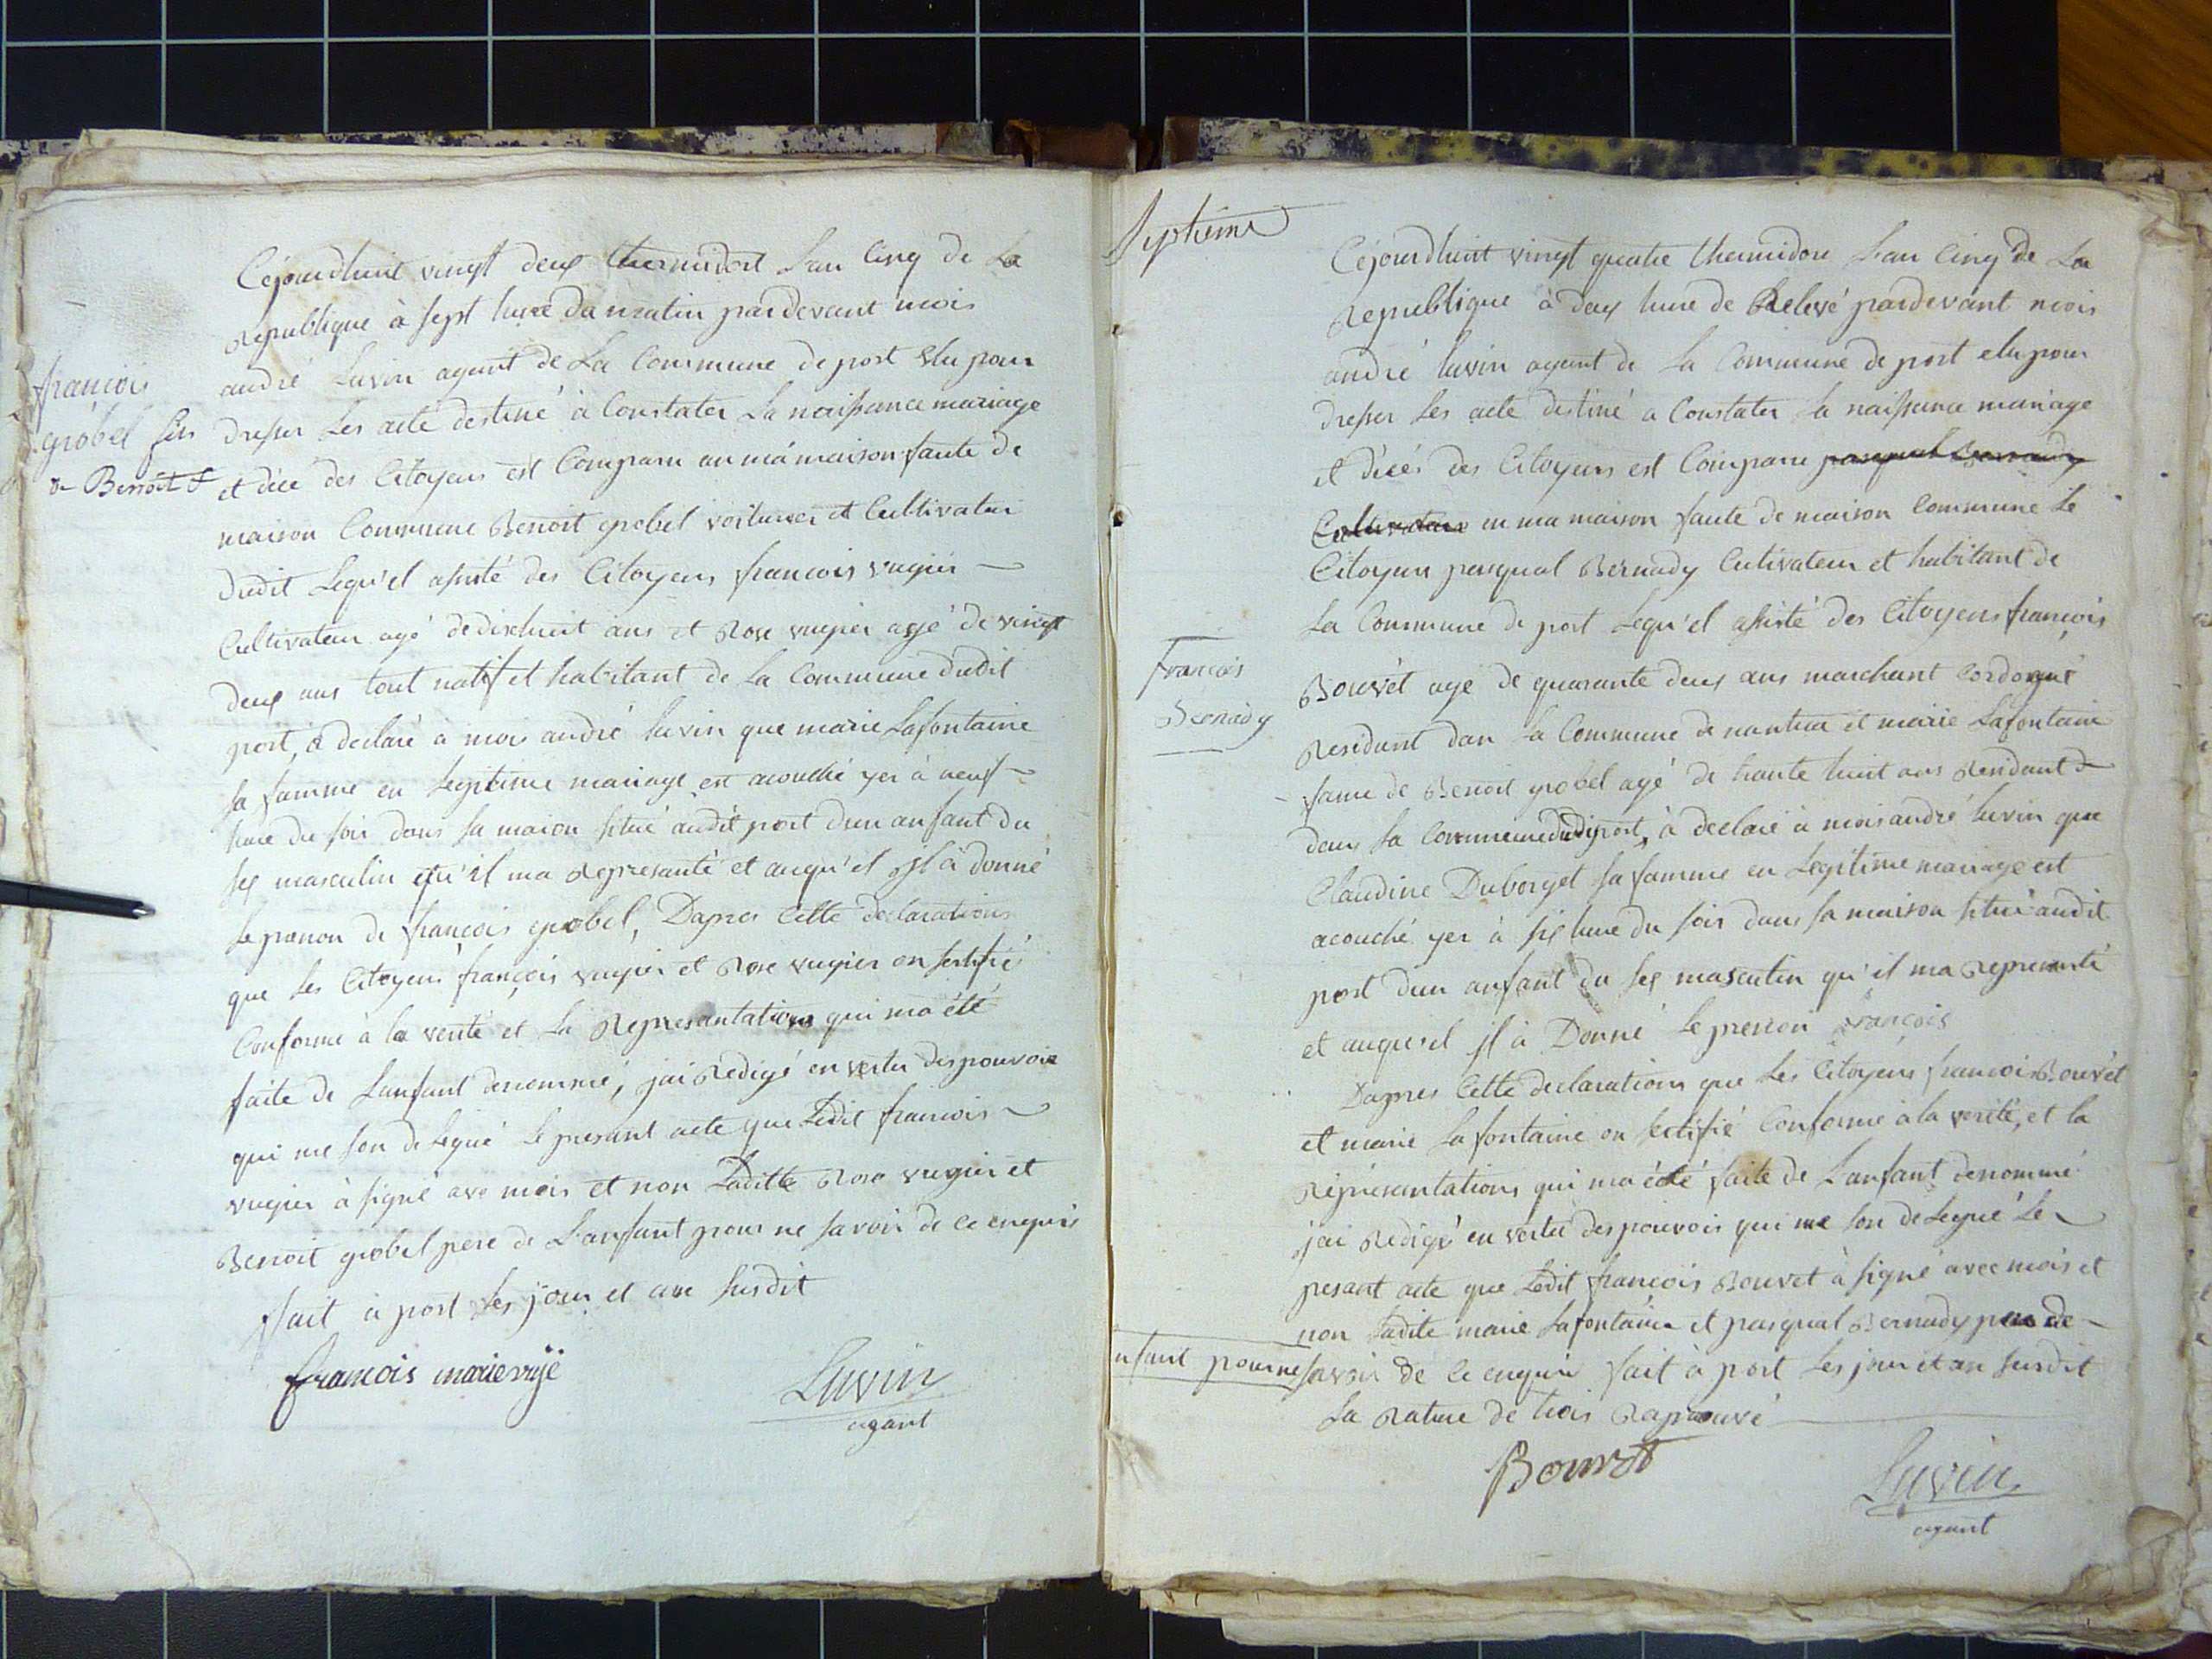 françois
grobel fils
de Benoit
Cejourdhuit vingt deux thermidort Lan Cinq de La
Republique à sept hure du matin pardevant mois
andré Luvin agant de La Commune de port Elu pour
dresser Les acte destiné à Constater La naissance mariage
et déce des Citoyens est Comparu an má maison faute de
maison Commune Benoit grobel voiturier et Cultivateur
dudit Lequ'el assisté des Citoyens francois vugier
Cultivateur agé de dixhuit ans et Rose vugier agé de vingt
deux ans tout natif et habitant de La Commune dudit
port, à declaré à moi andré Luvin que marie Lafontaine
sa famme en Legitime mariage est acouché yer à neuf
hure du soir dans sa maison situé audit port dun anfant du
sex masculin qu'il ma Represanté et auqu'el jl à donné
Le prenon de françois grobel, Dapres Cette declarations
que Les Citoyens françois vugier et Rose vugier on sertifié
Conforme à la verité et La Represantations qui ma été
faite de Lanfant denommé, jai Redigé en vertu des pouvoir
qui me son delegué Le presant acte que Ledit francois
vugier à signé ave mois et non Laditte Rose vugier et
Benoit grobel pere de L'anfant pour ne savoir de ce enquis
fait à port Les jour et an susdit
francois marie vuje
Luvin
agant
Septieme
francois
Bernady
Cejourdhuit vingt quatre thermidore Lan Cinq de La
Republique à deux hure de Relevé pardevant mois
andré luvin agant de La Commune de port elu pour
dresser Les acte destiné a Constater La naissance mariage
et décés des Citoyens est Comparu pasqual Bernady
Cultivateur en ma maison faute de maison Commune Le
Citoyens pasqual Bernady Cultivateur et habitant de
La Commune de port Lequ'el assisté des Citoyens françois
Bouvét agé de quarante deux ans marchant Cordognié
Residant dan La Commune de nantua et marie Lafontaine
fame de Benoit grobel agé de trante huit ans Residant
dans La Commune dudi port, à declaré à mois andré Luvin que
Claudine Duborget sa famme en Legitime mariage est
acouché yer à six hure du soir dans sa maison situé audit
port dun anfant du sex masculin qu'il ma Represanté
et auqu'el jl à Donné Le prenon françois
Dapres Cette declarations que Les Citoyens francois Bouvét
et marie Lafontaine on sertifié Conforme à la verité, et la
Représantations qui ma été faite de Lanfant denommé
jai Redigé en vertu des pouvois qui me son delegué Le
presant acte que Ledit françois Bouvet à signé avec mois et
non Ladite marie Lafontaine et pasqual Bernady pere de
nfant pour ne savoir de ce enquis fait à port Les jour et an susdit
La Rature de trois Raprouvé
Bouvet
Luvin
agant